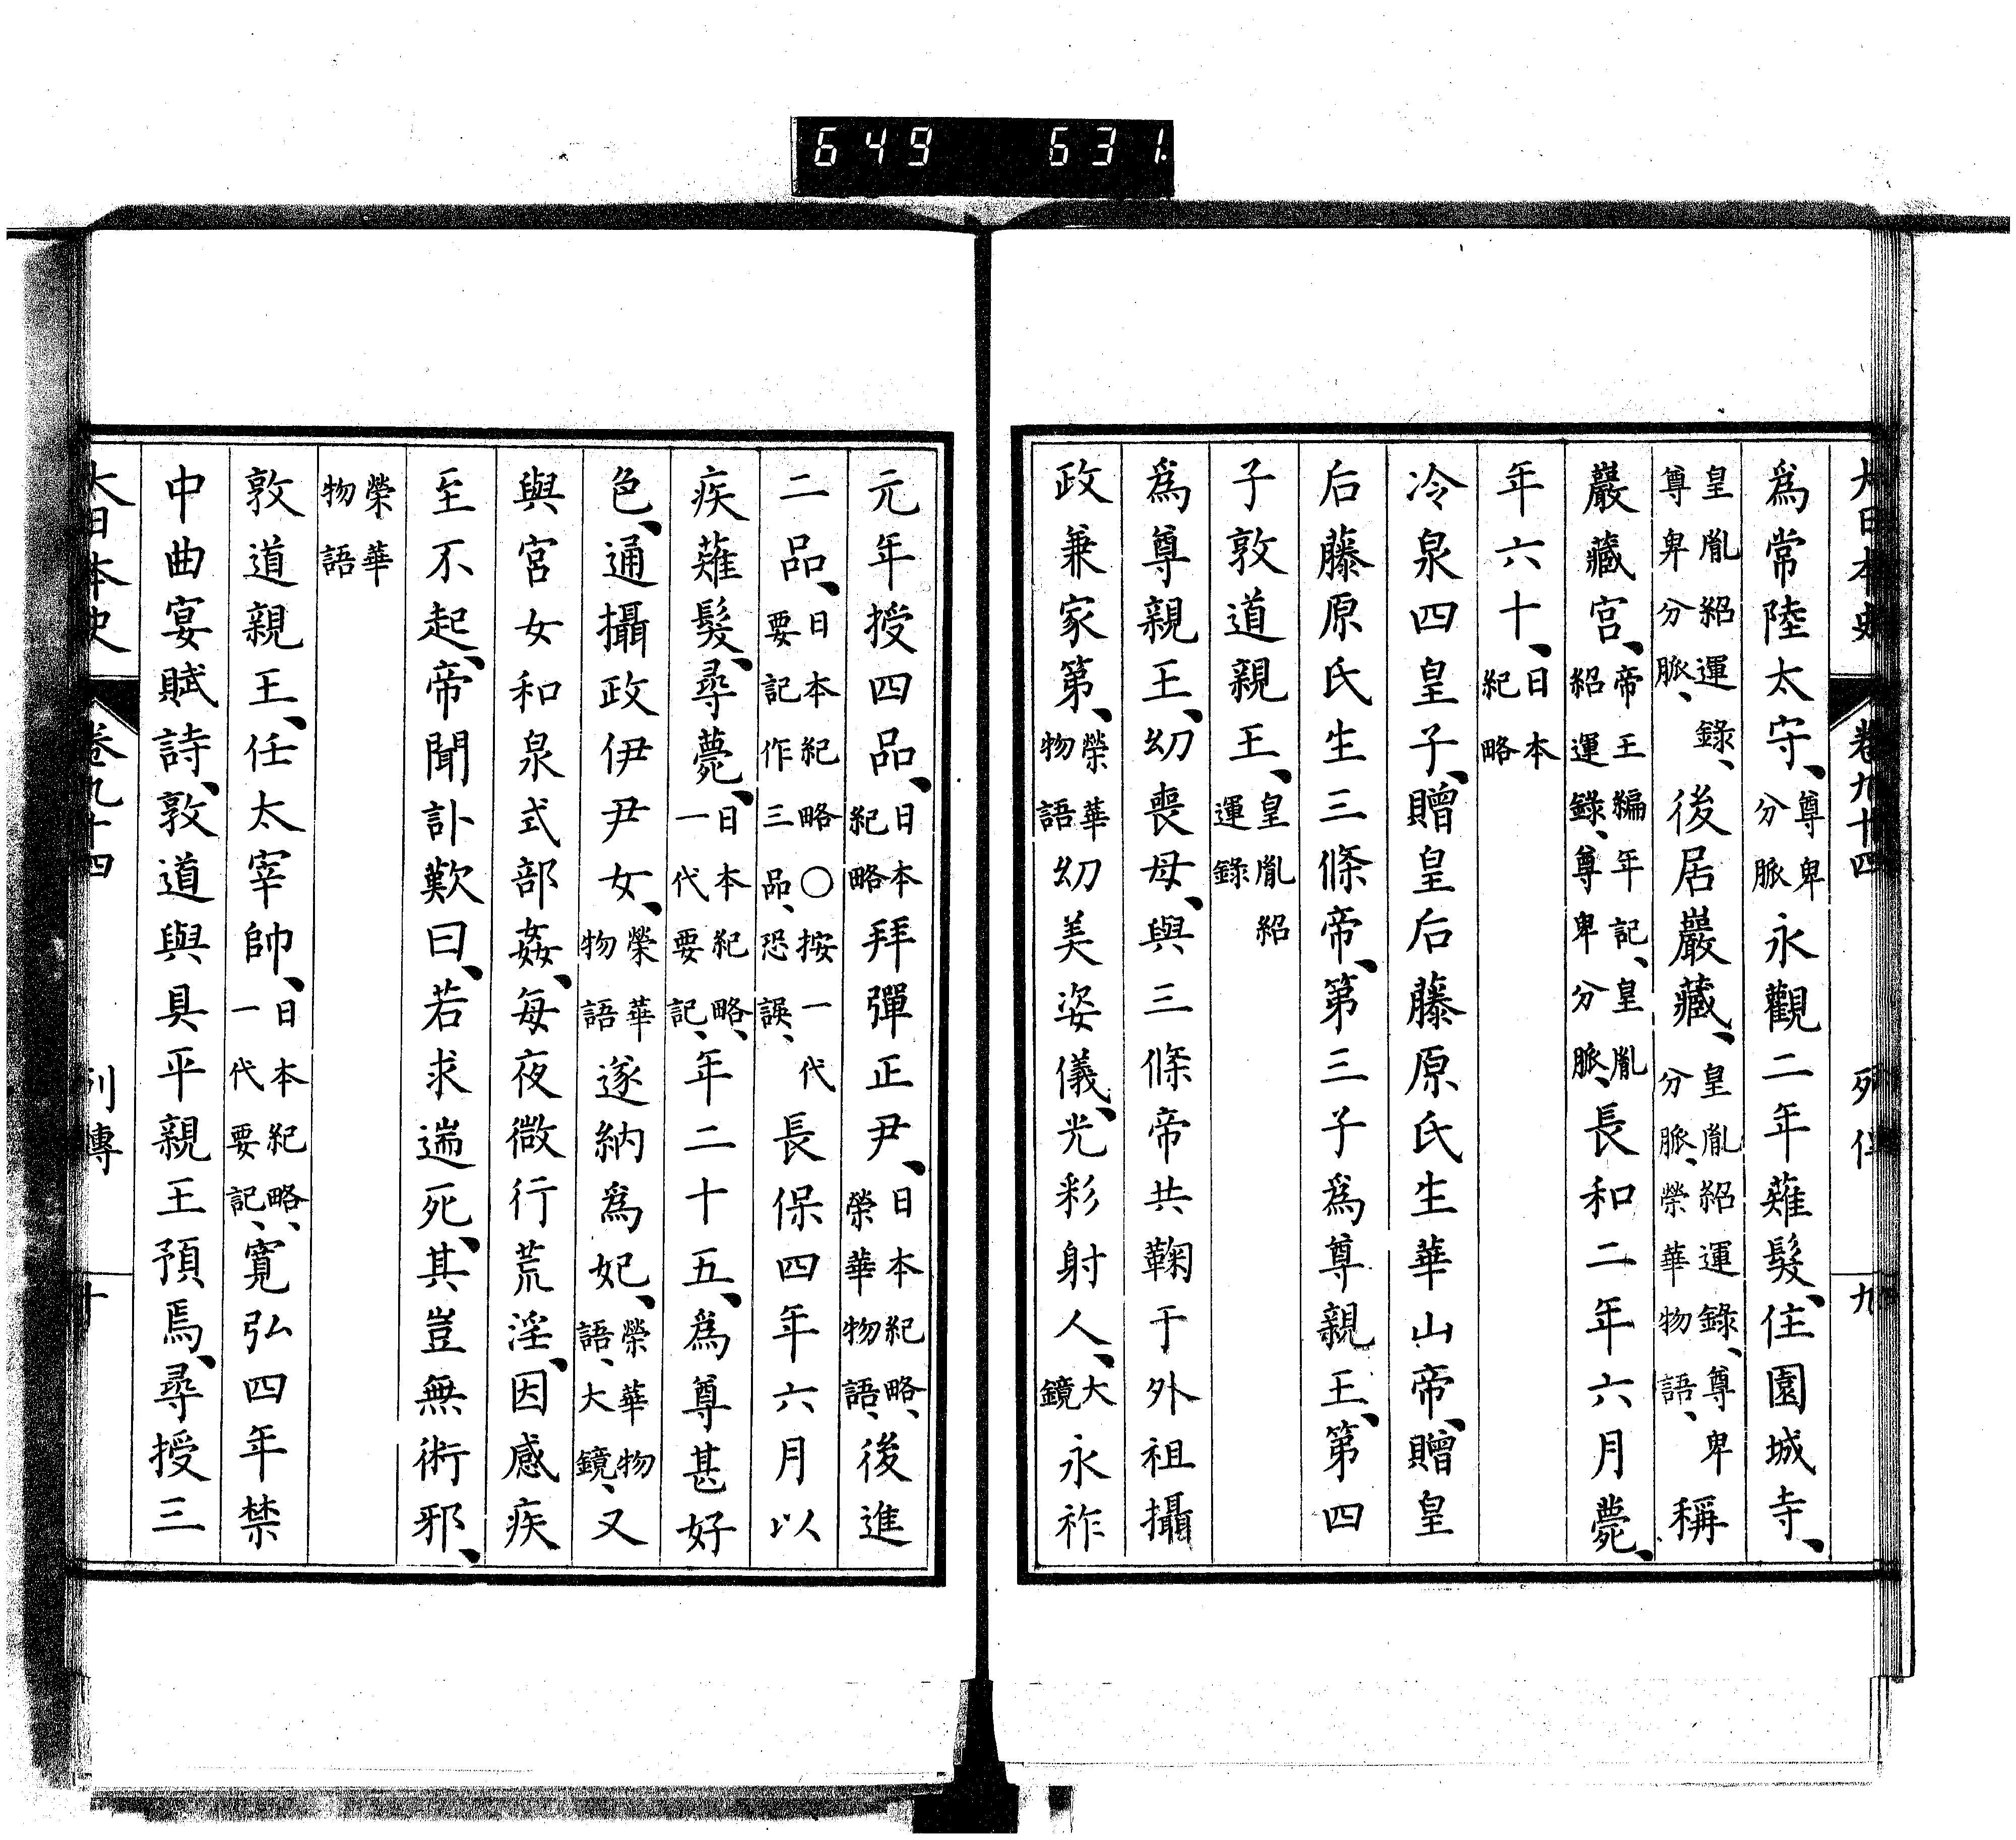 649 631
大日本史 卷九十四 列傳 九
爲常陸太守、尊卑分脈永觀二年薙髮、住園城寺、
皇胤紹運錄、尊卑分脈、後居巖藏、皇胤紹運錄、尊卑分脈、榮華物語、稱
巖藏宮、帝王編年記、皇胤紹運錄、尊卑分脈、長和二年六月薨、
年六十、日本紀略
冷泉四皇子、贈皇后藤原氏生華山帝、贈皇
后藤原氏生三條帝、第三子爲尊親王、第四
子敦道親王、皇胤紹運錄
爲尊親王、幼喪母、與三條帝共鞠于外祖攝
政兼家第、榮華物語幼美姿儀、光彩射人、大鏡永祚
元年授四品、日本紀略拜彈正尹、日本紀略、榮華物語、後進
二品、日本紀略○按一代要記作三品、恐誤、長保四年六月以
疾薙髮、尋薨、日本紀略、一代要記、年二十五、爲尊甚好
色、通攝政伊尹女、榮華物語遂納爲妃、榮華物語、大鏡、又
與宮女和泉式部姦、每夜微行荒淫、因感疾
至不起、帝聞訃歎曰、若求遄死、其豈無術邪、
榮華物語
敦道親王、任太宰帥、日本紀略、一代要記、寬弘四年禁
中曲宴賦詩、敦道與具平親王預焉、尋授三
大日本史 卷九十四 列傳 十